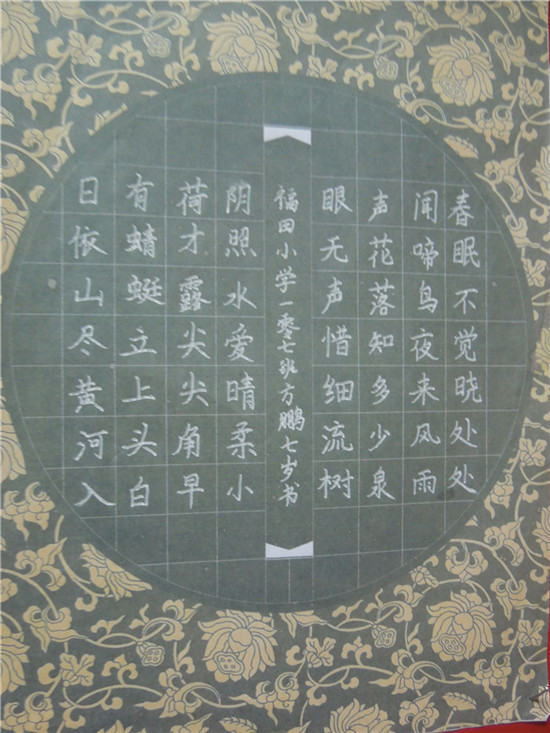 春眠不觉晓处处
闻啼鸟夜来风雨
声花落知多少泉
眼无声惜细流树
福田小学一零七班方鹏七岁书
阴照水爱晴柔小
荷才露尖尖角早
有蜻蜓立上头白
日依山尽黄河入